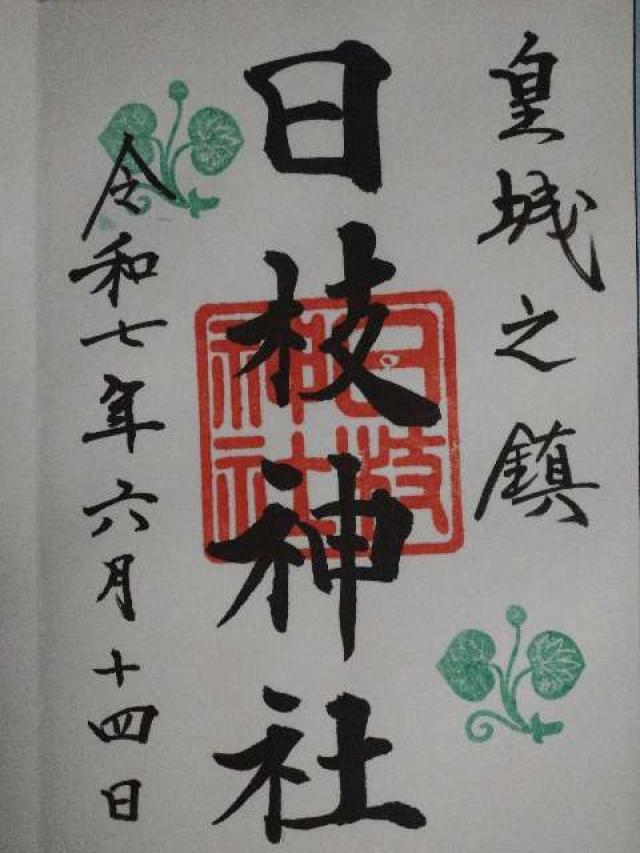 皇城之鎮
日枝神社
日枝神社
令和七年六月十四日